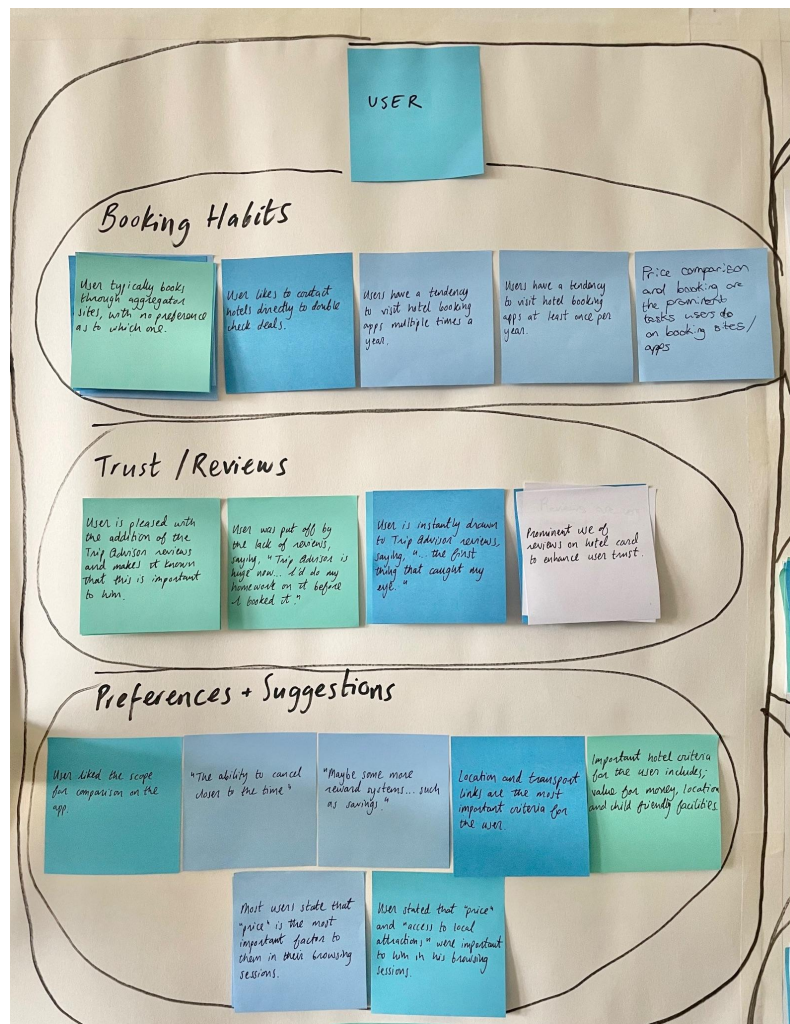 USER
Booking Habits
User typically books
through aggregator
sites, with no preference
as to which one.
User likes to contact
hotels directly to double
check deals.
Users have a tendency
to visit hotel booking
apps multiple times a
year.
Users have a tendency
to visit hotel booking
apps at least once per
year.
Price comparison
and booking are
the prominent
tasks users do
on booking sites/
apps
Trust / Reviews
User is pleased with
the addition of the
Trip Advisor reviews
and makes it known
that this is important
to him.
User was put off by
the lack of reviews,
saying, "Trip Advisor is
huge now... I'd do my
homework on it before
I booked it."
User is instantly drawn
to Trip Advisor reviews,
saying, "... the first
thing that caught my
eye."
Prominent use of
reviews on hotel card
to enhance user trust.
Preferences + Suggestions
User liked the scope
for comparison on the
app.
"The ability to cancel
closer to the time"
"Maybe some more
reward systems... such
as savings."
Location and transport
links are the most
important criteria for
the user.
Important hotel criteria
for the user includes;
value for money, location
and child friendly facilities.
Most users state that
"price" is the most
important factor to
them in their browsing
sessions.
User stated that "price"
and "access to local
attractions" were important
to him in his browsing
sessions.